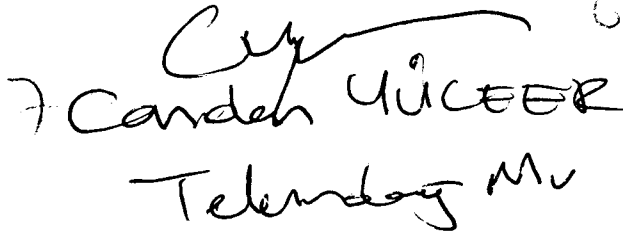 7 Candan YÜCEER
Tekirdağ Mv